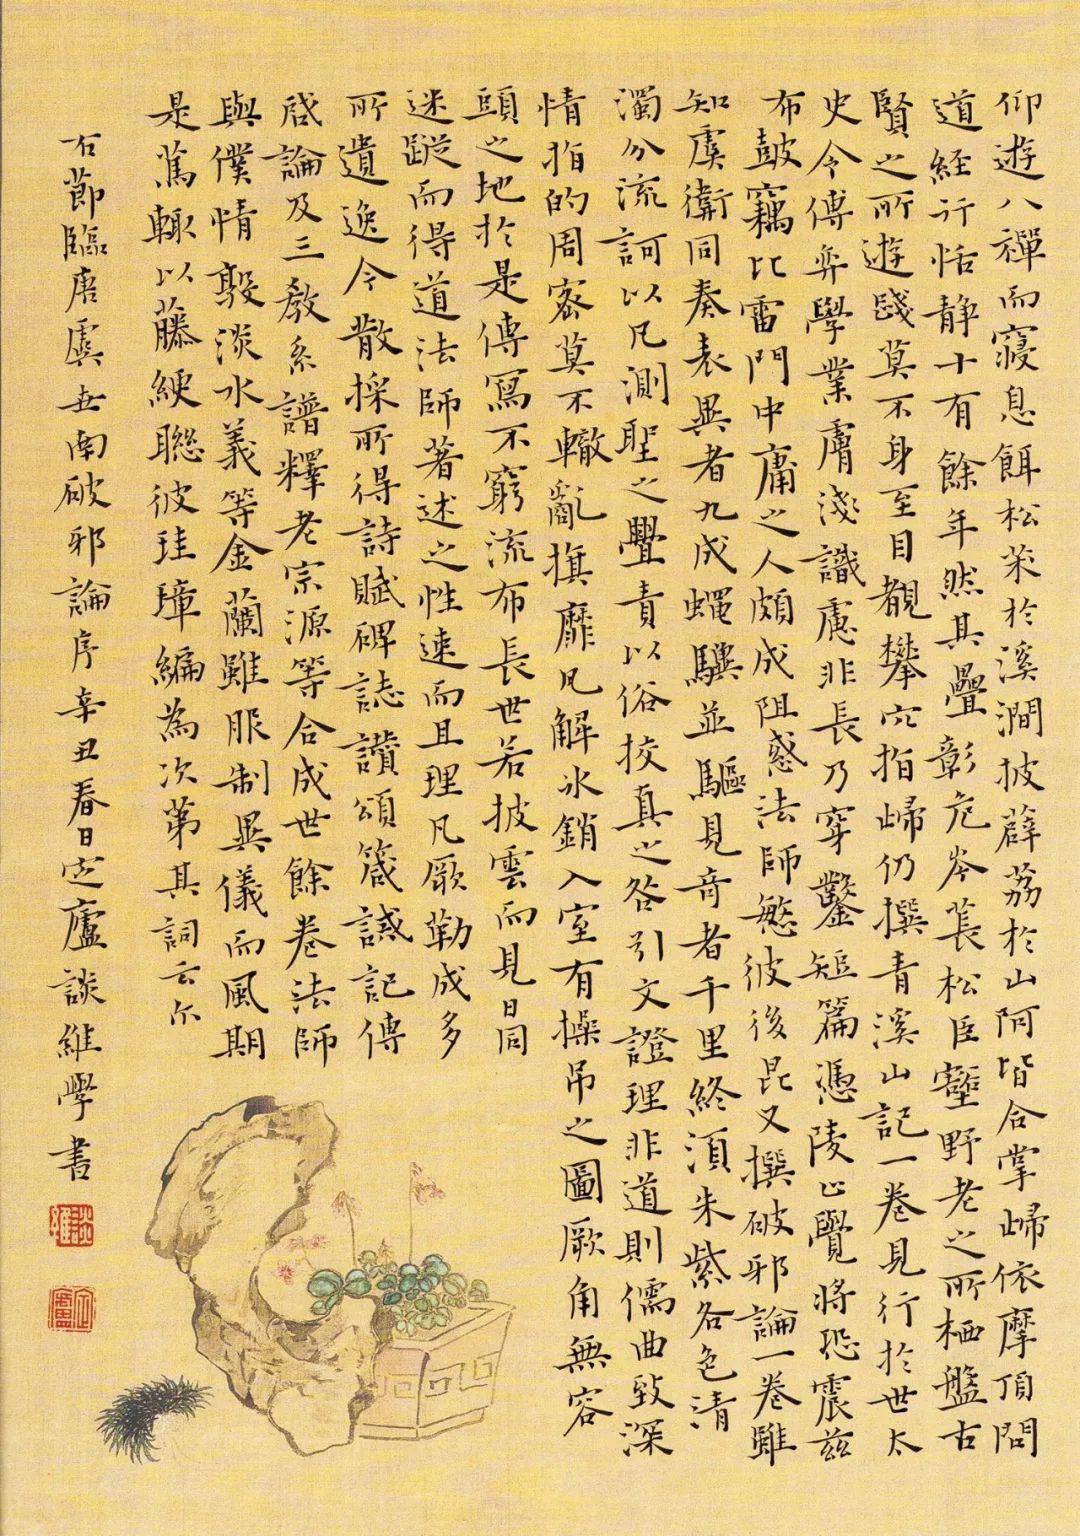 仰遊八禪而寢息餌松荣於溪澗披薜荔於山阿皆合掌歸依摩頂問
道經行恬静十有餘年然其疊彰危岑萇松臣壑野老之所栖盤古
賢之所遊踐莫不身至目覩攀穴指歸仍撰青溪山記一卷見行於世太
史令傅弈學業膚淺識慮非長乃穿鑿短篇憑陵正覺將恐震茲
布鼓竊比雷門中庸之人頗成阻惑法師慜彼後昆又撰破邪論一卷雖
知虞衛同奏表異者九成蠅驥並驅見奇者千里終湏朱紫各色清
濁分流訶以凡測聖之亹責以俗挍真之咎引文證理非道則儒曲致深
情指的周密莫不轍亂旗靡凡解冰銷入室有操吊之圖厥角無容
頭之地於是傳寫不窮流布長世若披雲而見日同
迷蹤而得道法師著述之性速而且理凡厥勒成多
所遺逸今散採所得詩賦碑誌讚頌箴誡記傳
啟論及三教系譜釋老宗源等合成世餘卷法師
與僕情敦淡水義等金蘭雖服制異儀而風期
是篤輙以藤綆聯彼珪璋編為次第其詞云尔
右節臨唐虞世南破邪論序辛丑春日定廬談維學書
談維
定廬